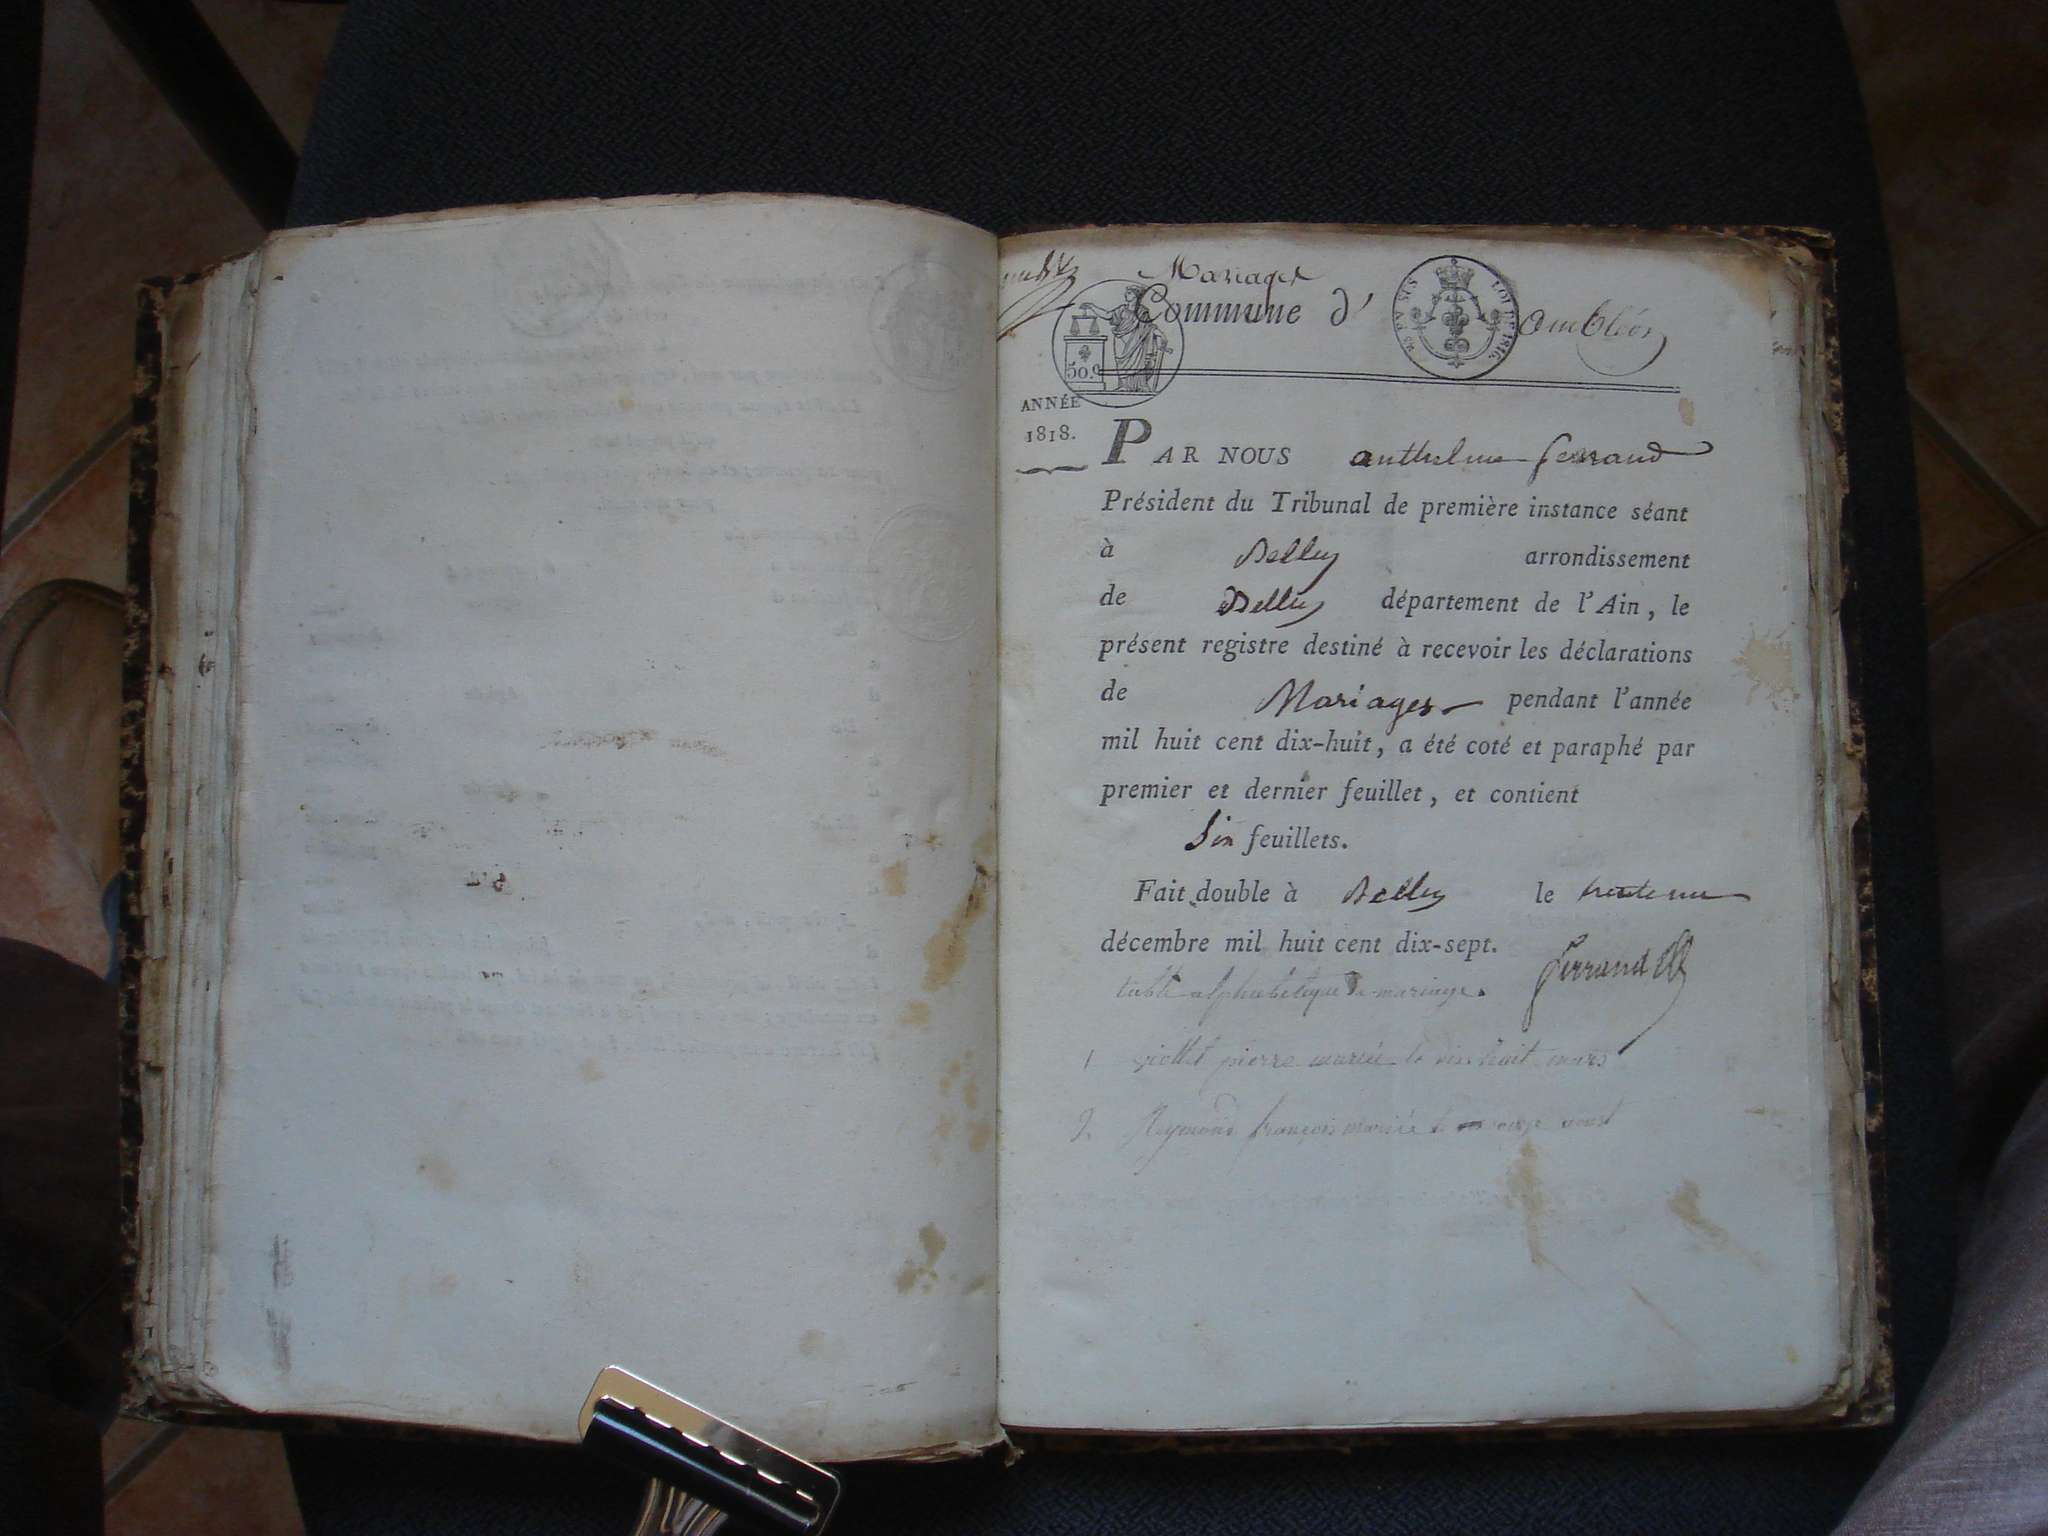 Mariages
Commune d' ambléon
50.c
LOI DE 1816.
ANNÉE
1818.
PAR NOUS anthelme ferrand
Président du Tribunal de première instance séant
à Belley arrondissement
de Belley département de l'Ain, le
présent registre destiné à recevoir les déclarations
de Mariages pendant l'année
mil huit cent dix-huit, a été coté et paraphé par
premier et dernier feuillet, et contient
Six feuillets.
Fait double à Belley le trente un
décembre mil huit cent dix-sept.
ferrand
table alphabétique de mariage.
1 viollet pierre mariée le dix huit mars
2. Reymond françois mariée le août